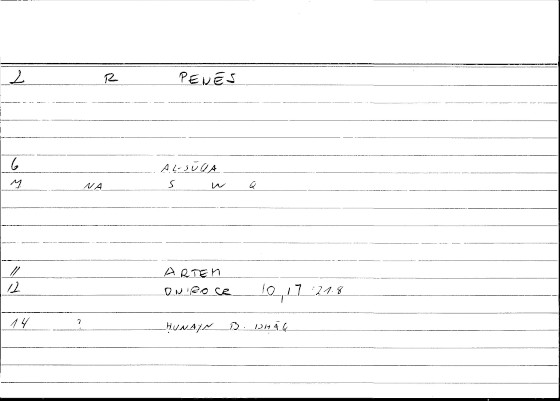 2 R PENĒS
6 AL-SŪQA
M NA S W Q
11 ARTEM
12 ONIROCR 10,17 :21.8
14 ? ḤUNAYN B. ISḤĀQ